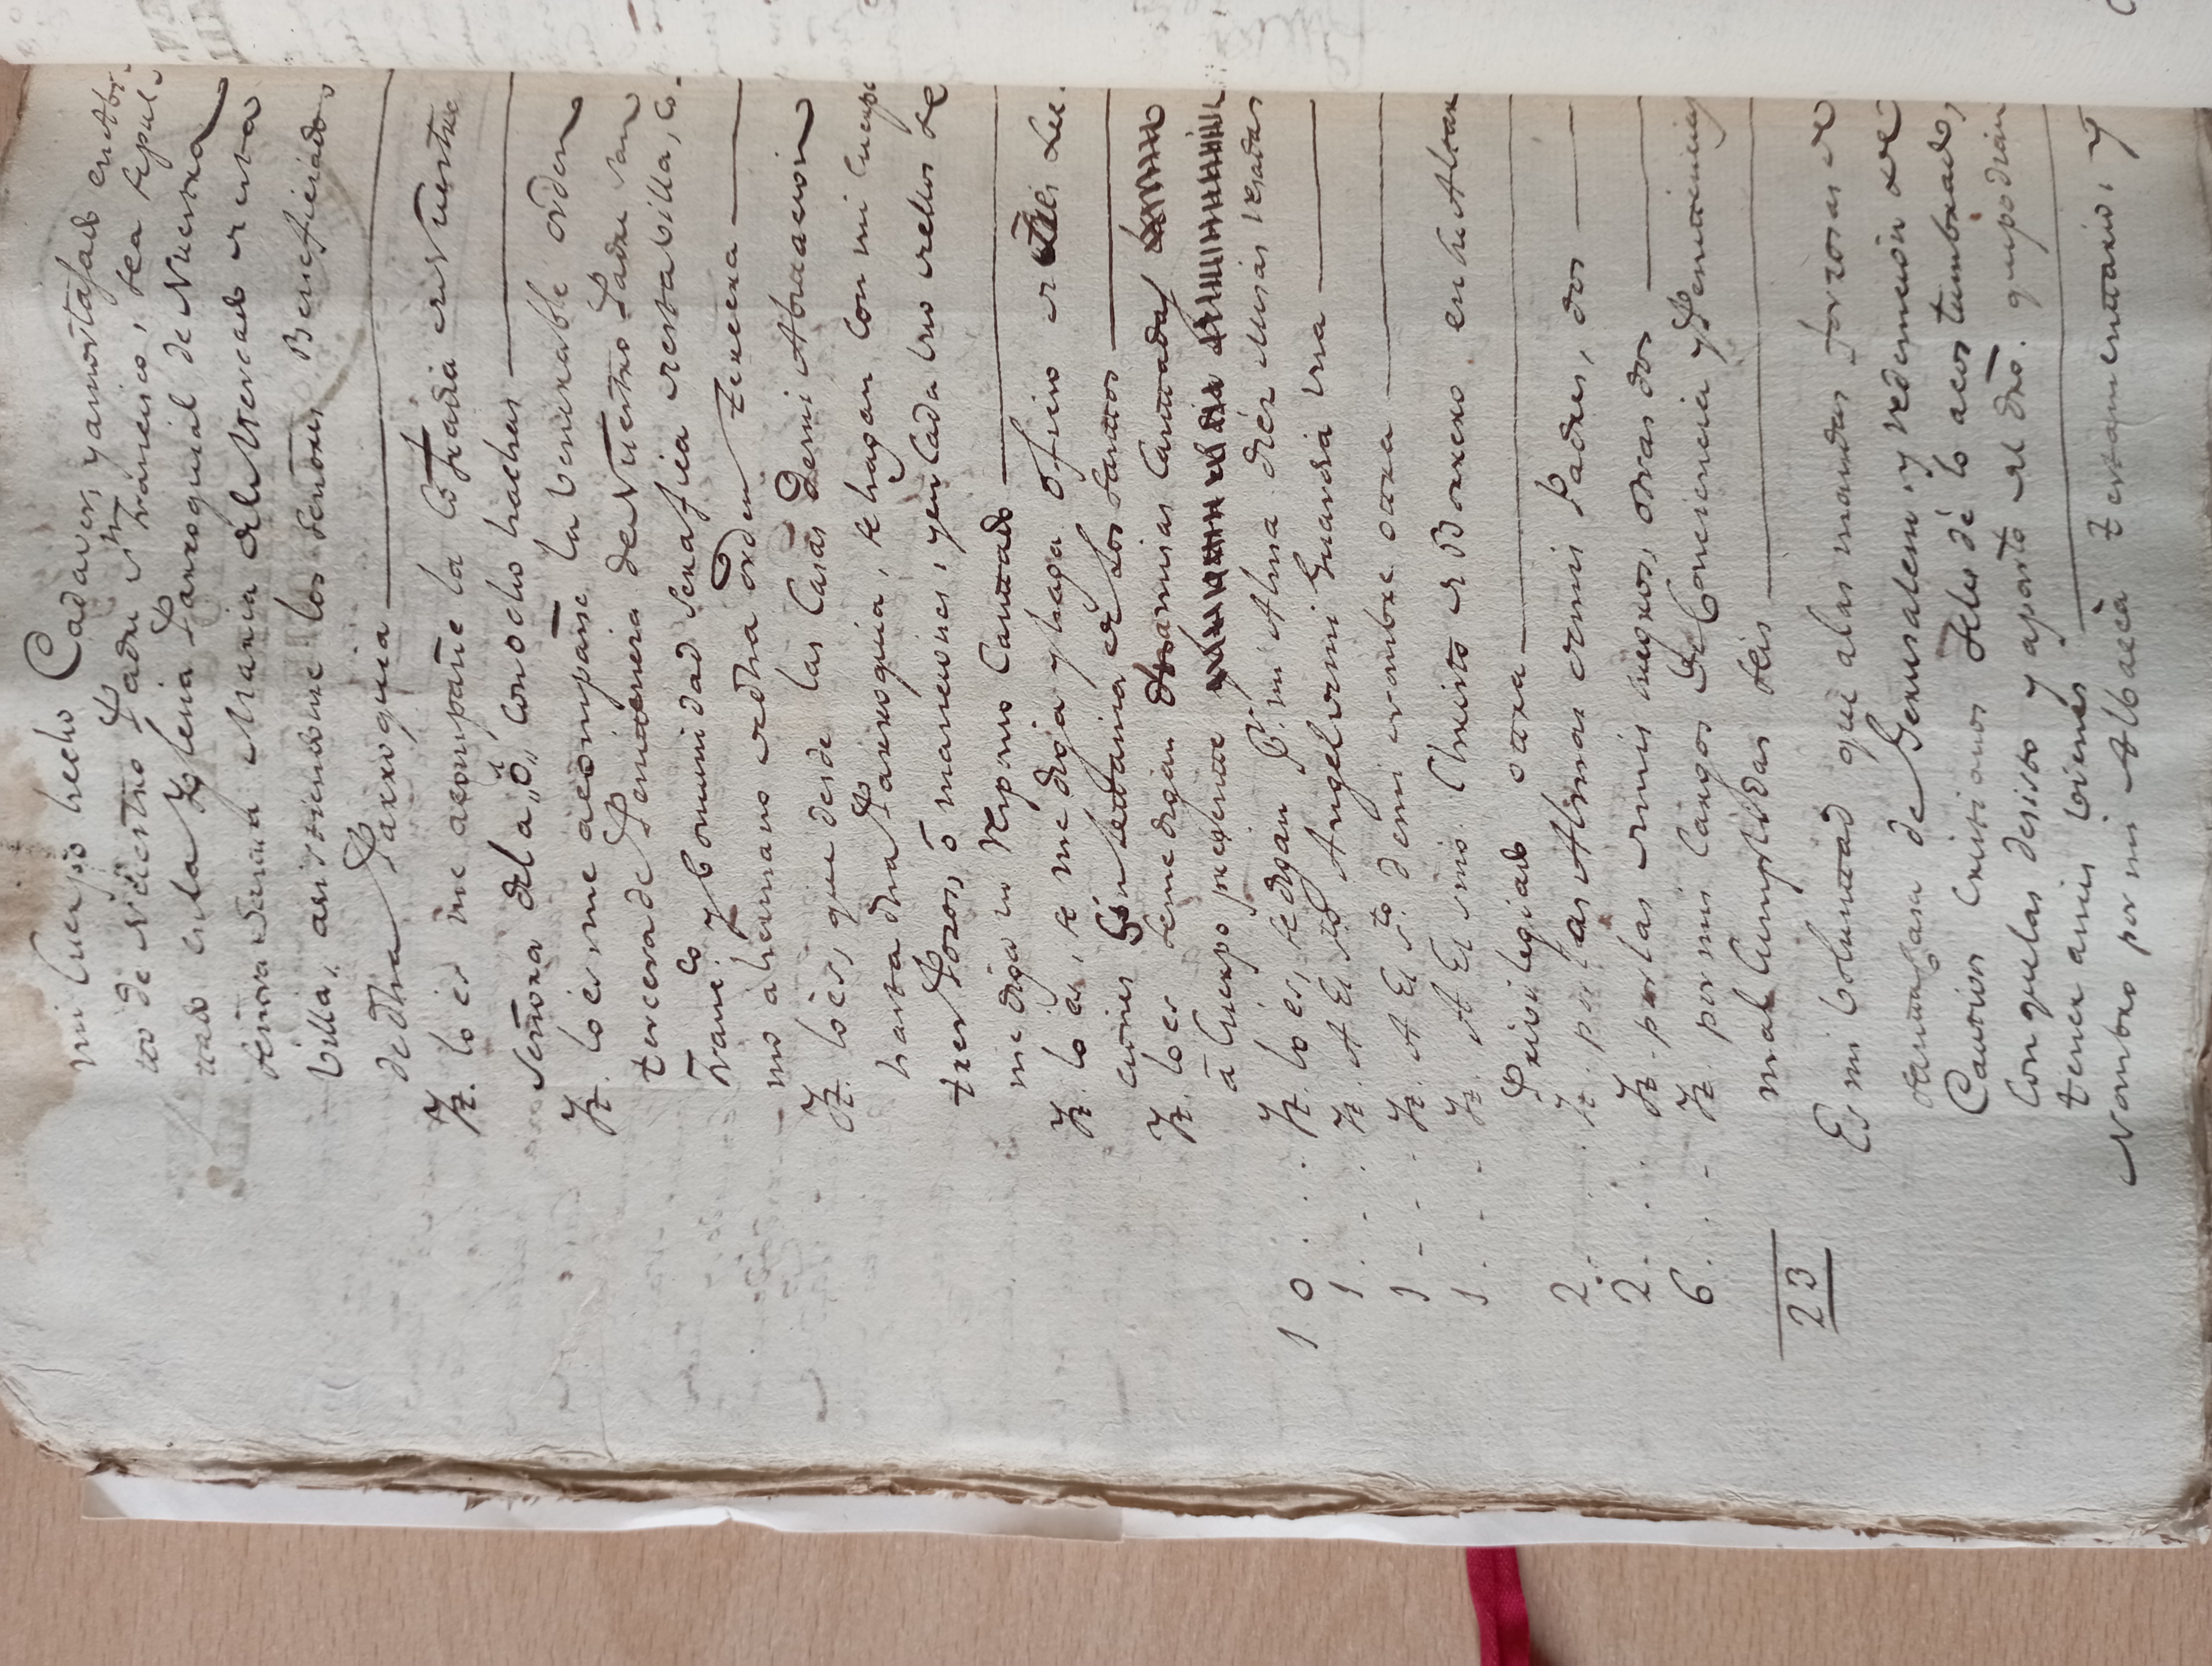 mi Cuerpo hecho Cadaver, y amortajado en Abi-
tto de Nuestro Padre Sn Francisco, sea sepul-
ttado en la Yglesia Parroquial de Nuestra
señora Santa Maria del Mercado de esta
Villa, asistiendome los señores Beneficiados
de dha Parroquia
Yt. lo es me acompañe la Cofradia de Nuestra
Señora de la „ó„ con ocho hachas
Yt. lo es, me acompañe la Venerable orden
tercera de Penittencia de Nuestro Padre San
Franc.co y Comunidad Serafica de esta Villa, co-
mo a hermano de dha orden tercera
Yt. lo es, que desde las Casas de mi Abitacion
hasta dha Parroquia, se hagan con mi cuerpo
tres Posos, ó manciones, y en Cada Uno de ellos se
me diga un Responso Canttado
Yt. lo es, se me diga y haga oficio de tres Lec-
ciones Sin Lettania de Los Santtos
Yt. lo es se me digan misas Canttadas
á Cuerpo presentte
10 Yt. lo es, se digan Pr. mi Alma diéz Misas resadas
1 Yt. A El Sto. Angel de mi Guardia Una
1 Yt. A El Sto. de mi nombre ottra
1 Yt. A El Smo. Christo de Borrero en su Altar
Privilegiado ottra
2 Yt. por las Almas de mis Padres, dos
2 Yt. por las de mis suegros, otras dos
6 Yt. por mis Cargos de Conciencia y Penittencias
mal Cumplidas seis
23
Es mi Volunttad que a las mandas forzosas de
santta Casa de Gerusalem y redemcion de
Cautivos Cristianos se les dé lo acostumbrado,
Con que las desisto y aparto del dro. que podian
tener a mis vienes
Nombro por mi Albacea testamenttario, y